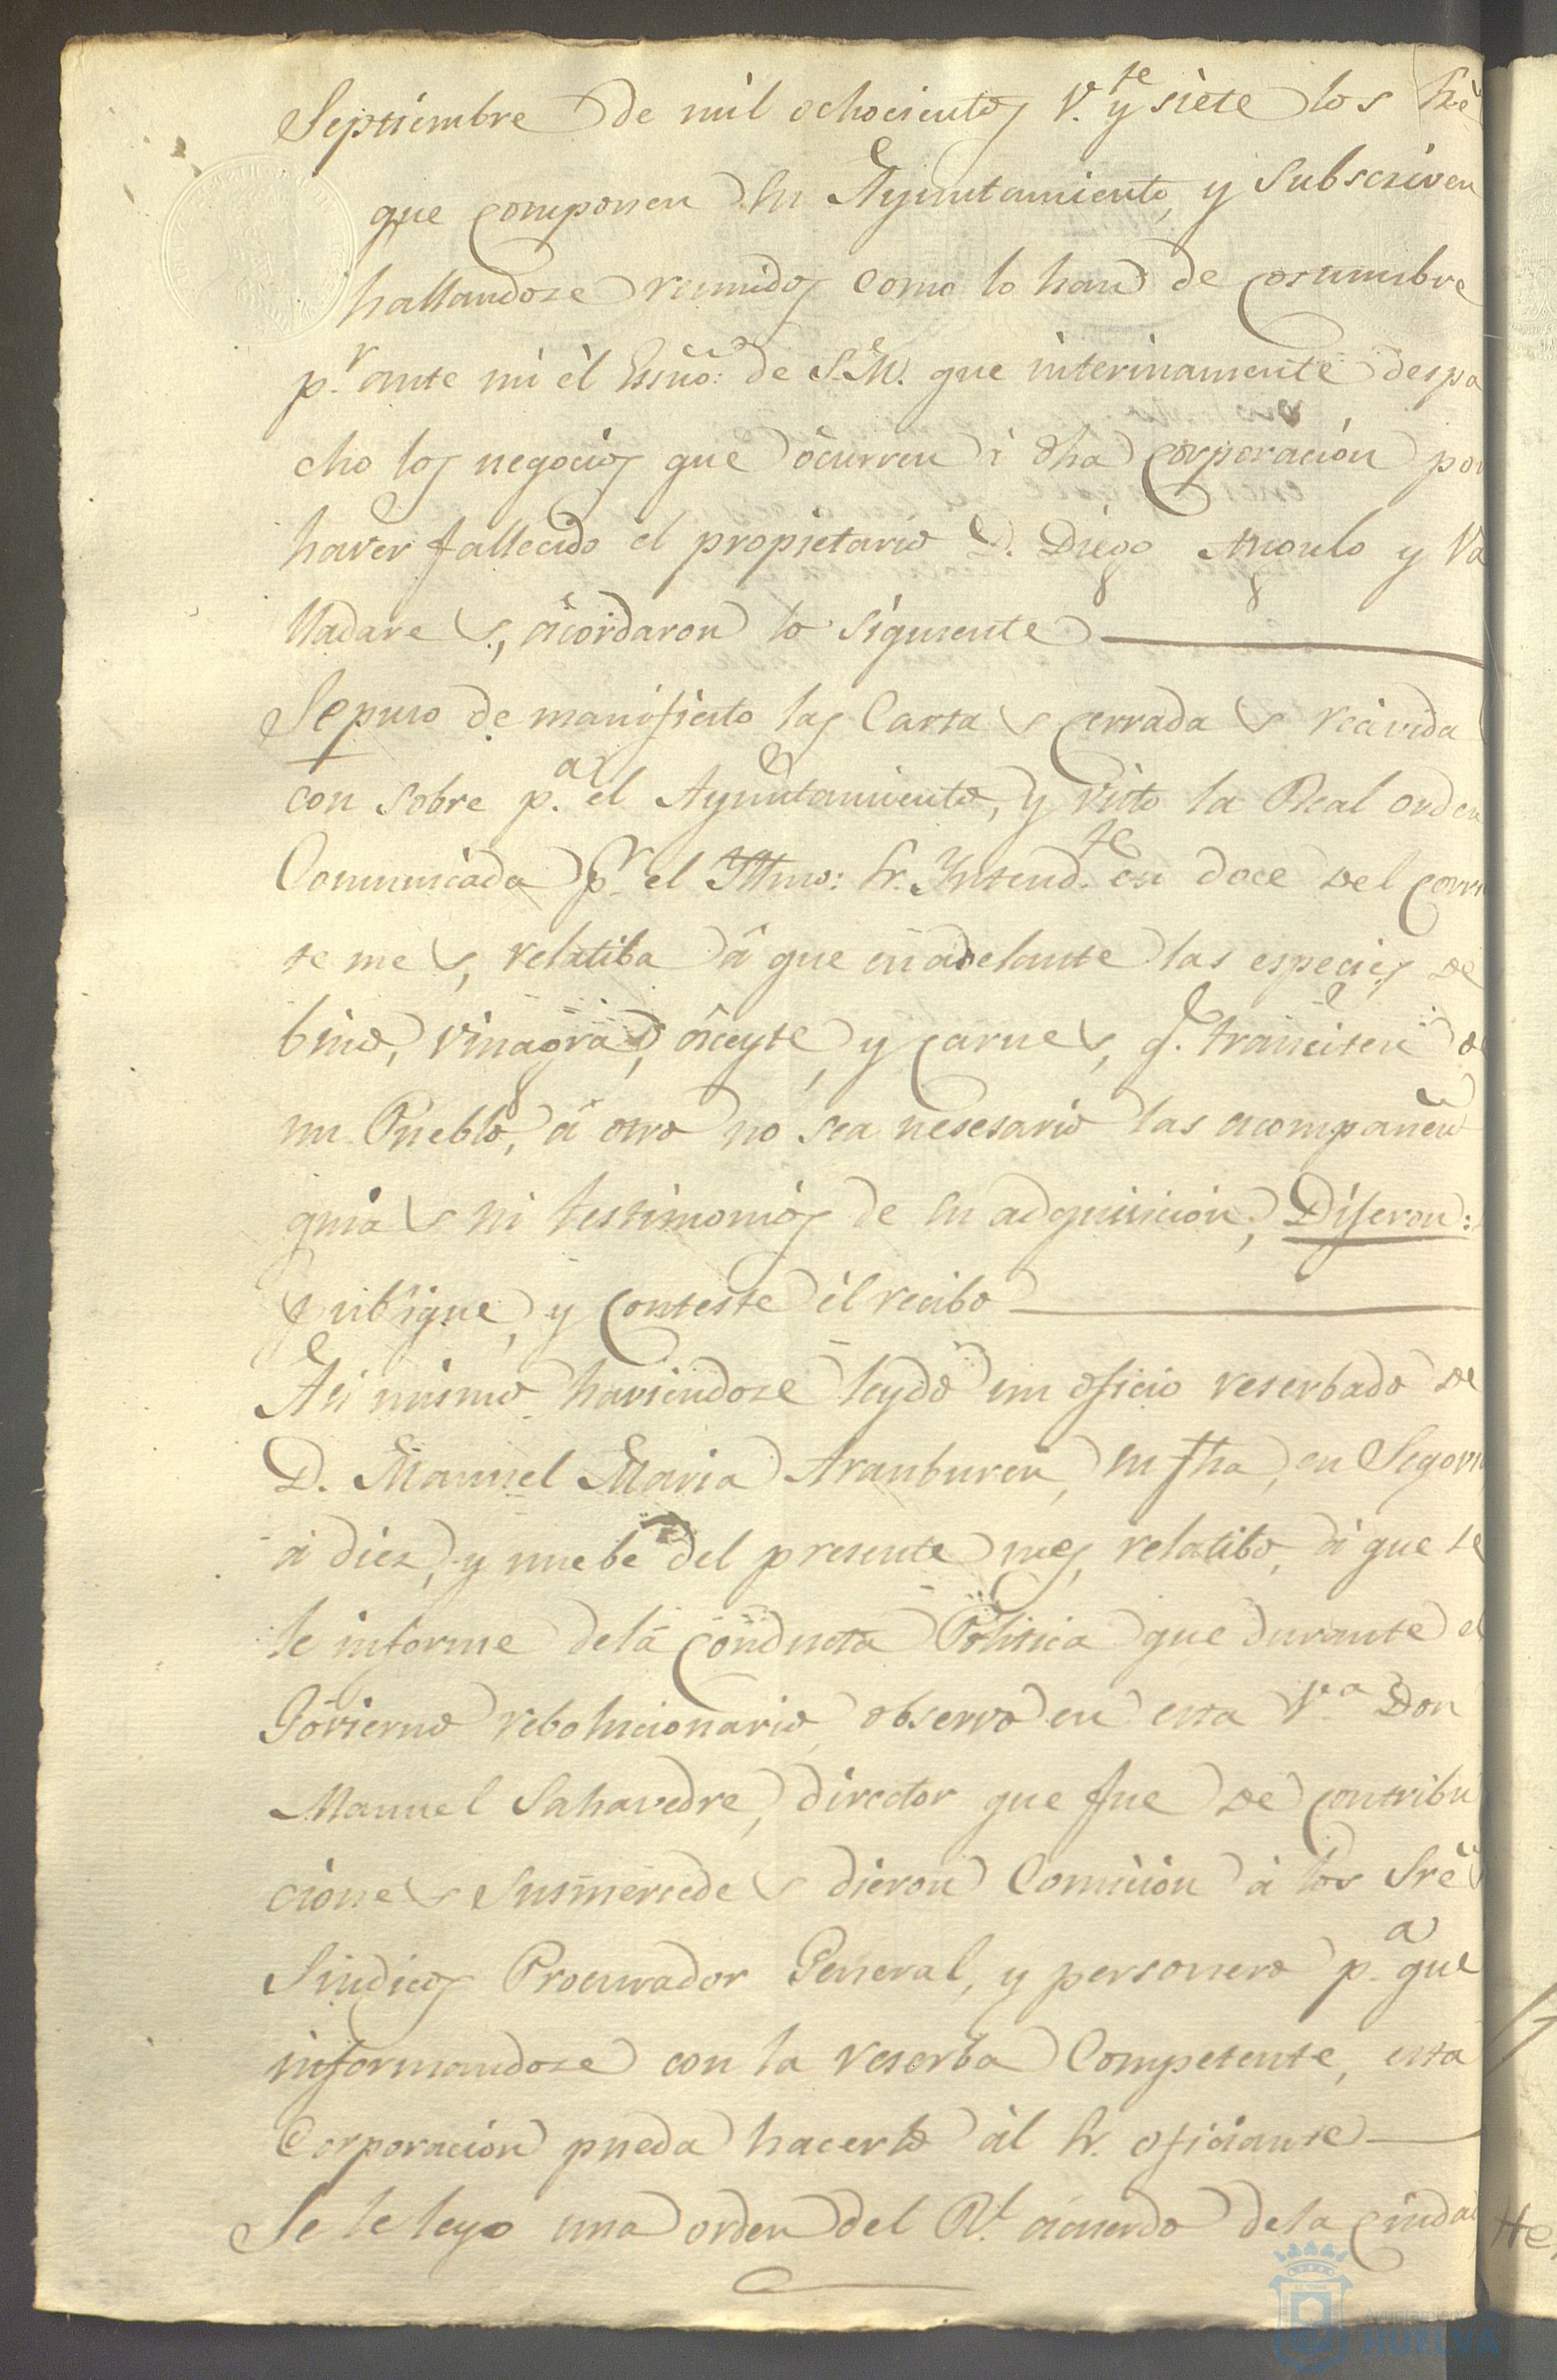 Septiembre de mil ochocientos V.te y siete los Sre
que componen su Ayuntamiento, y Subscriven
hallandose reunidos como lo han de costumbre
p.r ante mi él Essño: de S.M. que interinamente despa
cho los negocios que ocurren á dha corporacion por
haver fallecido el propietario D. Diego Angulo y Va
lladares, acordaron lo siguiente
Se puso de manifiesto las Cartas cerradas recivida
con sobre p.a el Ayuntamiento, y visto la Real orden
Comunicada p.r el Yltmo: Sr. Yntend.te en doce del corri
te mes, relatiba á que en adelante las especies de
bino, vinagra, aceyte, y carnes, q. transiten de
un Pueblo, á otro no sea nesesario las acompañen
guias ni testimonios de su adquisicion, Dijeron:
publique, y conteste él recibo
Asi mismo haviendose leydo un oficio reserbado de
D. Manuel Maria Aranburen, su fha, en Segovi
á diez, y nuebe del presente mes, relatibo, á que se
le informe dela conducta Politica que durante el
Govierno rebolucionario, observo en esta V.a Don
Manuel Sahavedre, director que fue de contribu
ciones Susmersedes dieron Comicion á los Sres
Sindicos Procurador General, y personero p.a que
informandose con la reserba Competente, esta
Corporacion pueda hacerlo ál Sr. oficiante
Se le leyo una orden del Rl. acuerdo dela Ciudad
Ayuntamiento
HUELVA